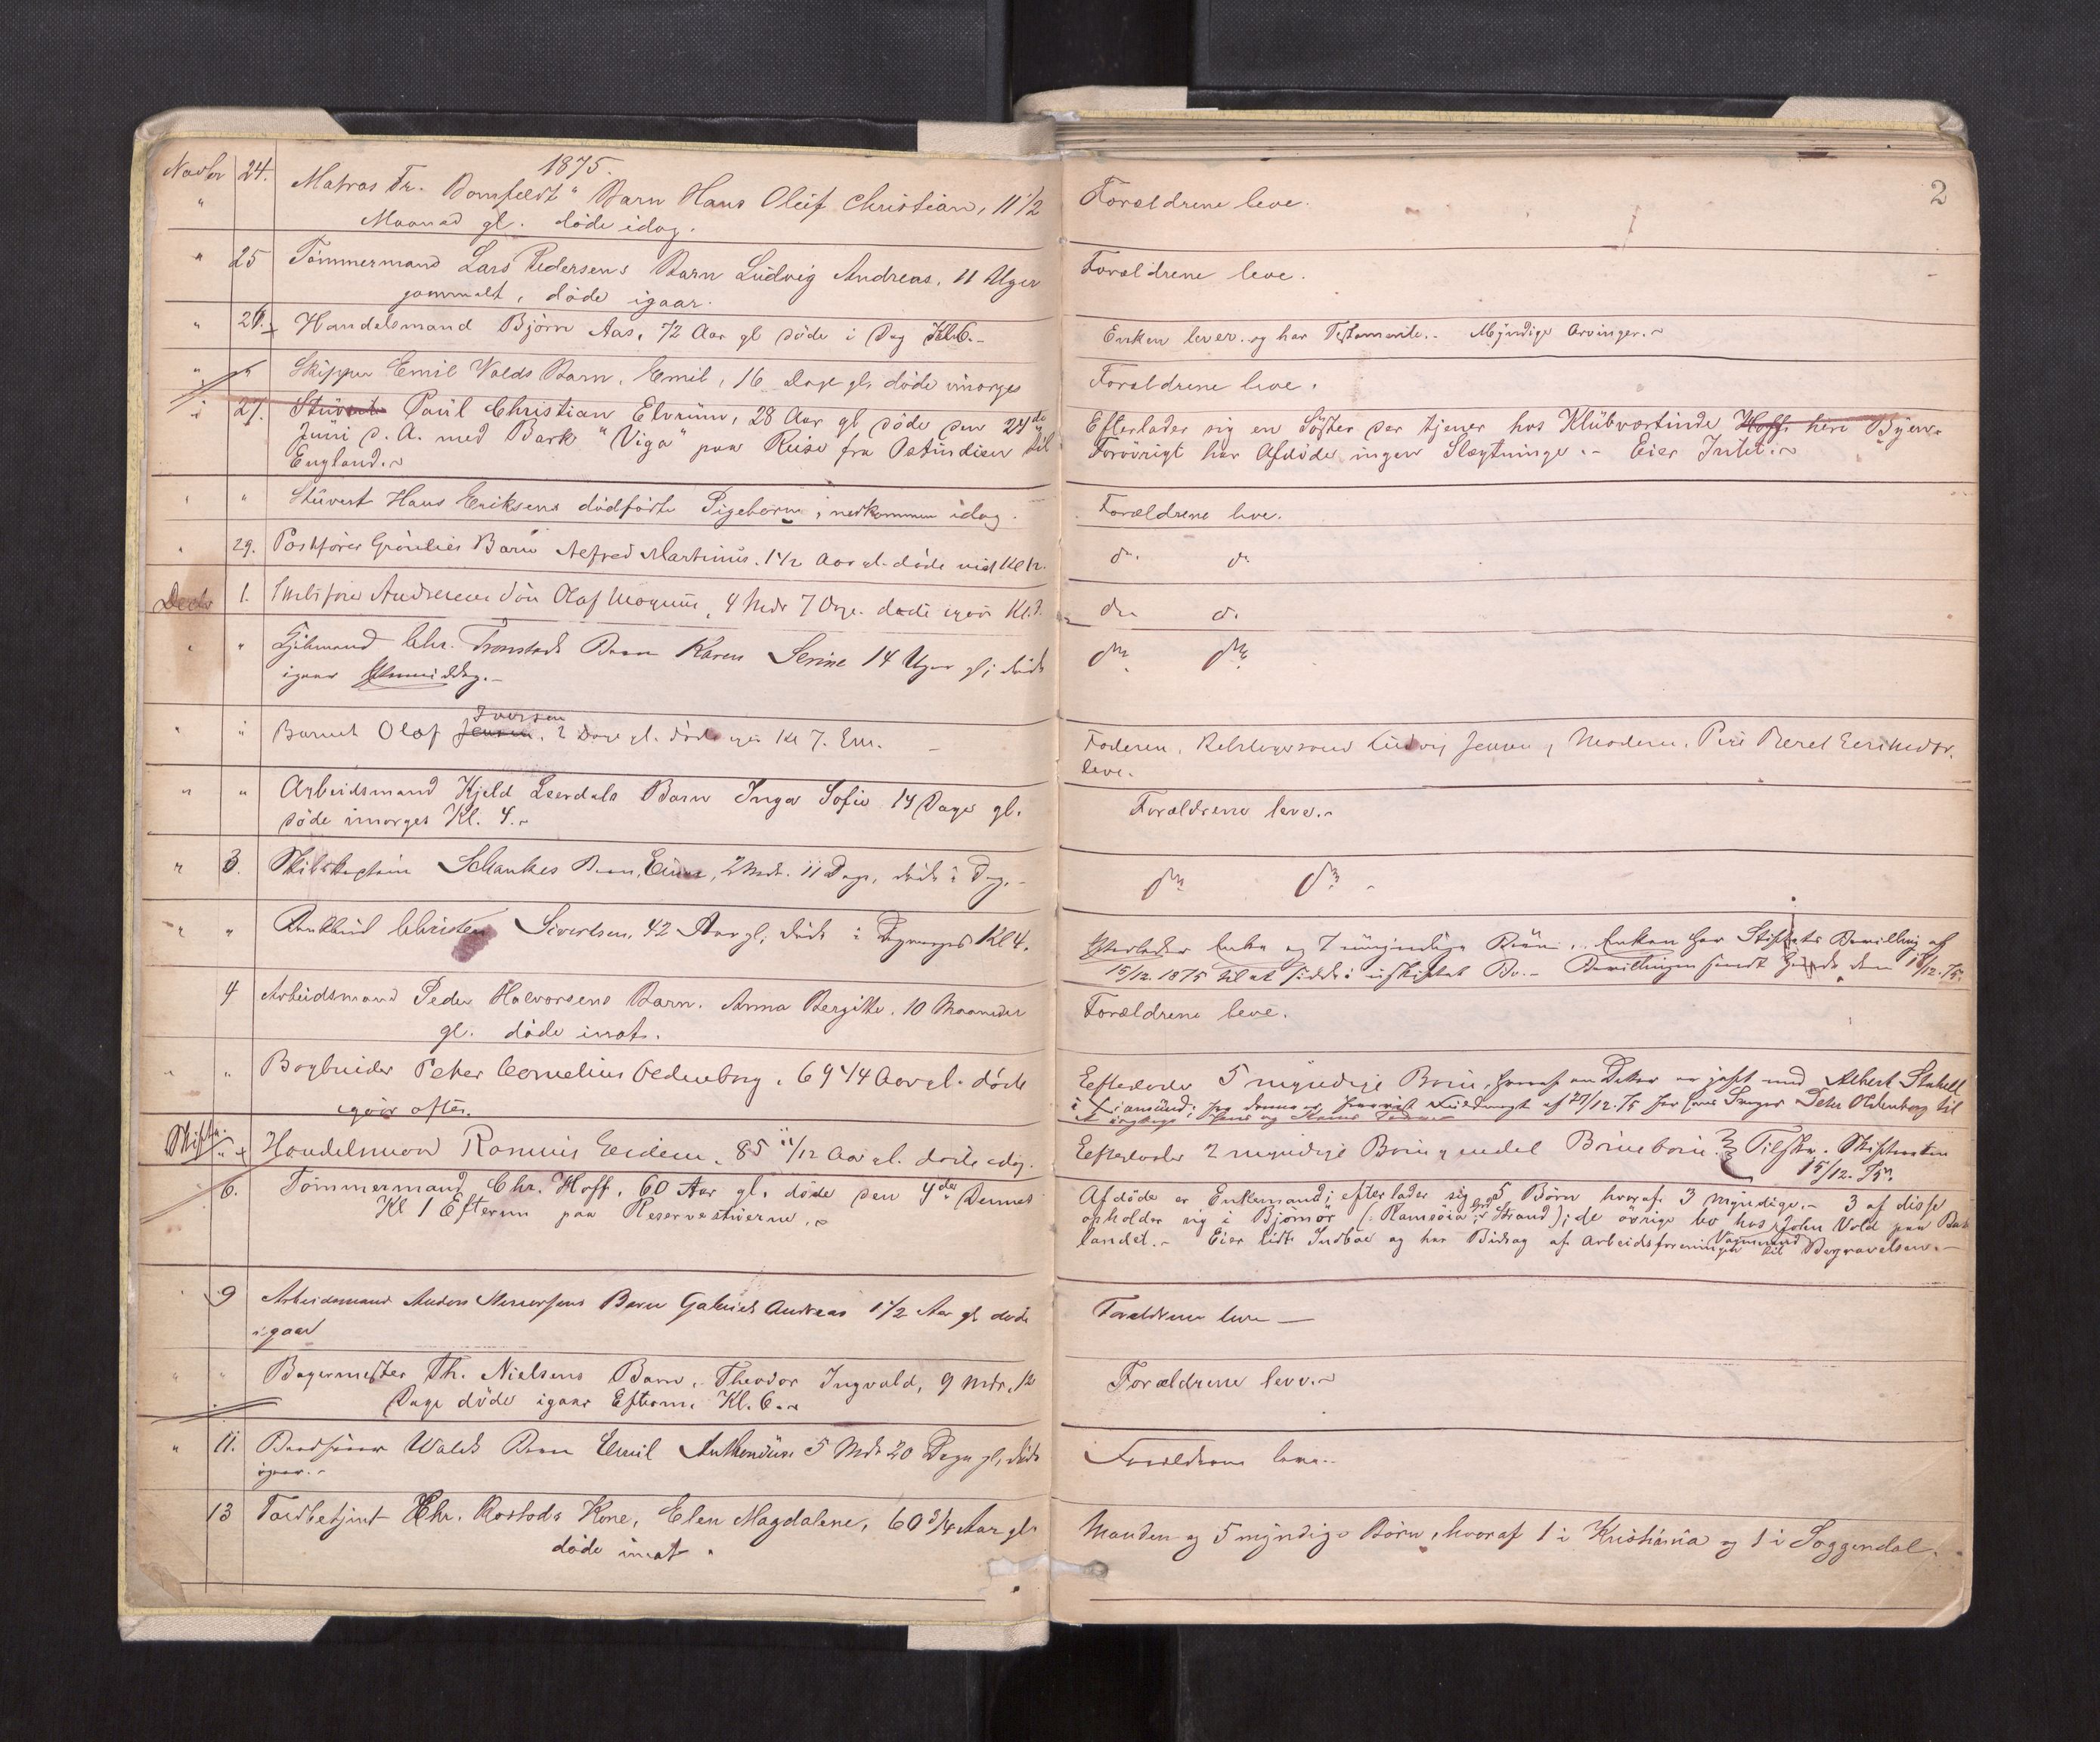 2
1875.
Novbr 24. Matros Fr. Bomfeldt's Barn Hans Oleif Christian, 11 1/2
Maaned gl. döde idag.
Forældrene leve.
" 25 Tömmermand Lars Pedersens Barn Ludvig Andreas, 11 Uger
gammelt, döde igaar.
Forældrene leve.
" 26. Handelsmand Björn Aas, 72 Aar gl döde i Dag Kl. 6.
Enken lever og har Testamente. Myndige Arvinger.
" " Skipper Emil Volds Barn, Emil, 16 Dage gl, döde imorges
Forældrene leve.
" 27. Stüvert Paul Christian Elvrum, 28 Aar gl döde den 24de
Juni d. A. med Bark "Viga" paa Reise fra Ostindien til
England.
Efterlader sig en Söster der tjener hos Klubværtinde Hoff heri Byen.
Forövrigt har Afdöde ingen Slægtninge. Eier Intet.
" " Stüvert Hans Eriksens dödfödte Pigebarn, nedkommen idag.
Forældrene leve.
" 29. Postförer Grönlies Barn Alfred Martinus, 1 1/2 Aar gl. döde Kl 12.
do. do
Decbr 1. Andresens Sön Olaf Magnus, 4 Mdr 7 Dage. döde igaar Kl.
do do.
" " Chr. Tronstads Barn Karen Serine 14 Uger gl; döde
igaar
do do
" " Barnet Olaf Jensen Iversen, 2 Dage gl. döde igaar Kl 7. Em.
Faderen, Ludvig Jensen, Moderen, Pige Beret
leve.
" " Arbeidsmand Kjeld Leerdals Barn Inga Sofie 14 Dage gl.
döde imorges Kl. 4.
Forældrene leve.
" 3. Skibskaptein Schankes Barn, Einar, 2 Mdr. 11 Dage, döde i Dag.
do do
" " Christen Sivertsen, 42 Aar gl; döde i Dagmorges Kl 4.
Efterlader Enke og 7 umyndige Börn. Enken har Stiftets Bevilling af
15/12. 1875 til at sidde i uskiftet Bo. Bevillingen sendt hende den 18/12. 75.
4 Arbeidsmand Peder Halvorsens Barn, Anna Bergitte, 10 Maaneder
gl. döde inat.
Forældrene leve.
" " Bogbinder Peter Cornelius Oldenborg, 69 1/4 Aar gl. döde
igaar aftes.
Efterlader 5 myndige Börn, hvoraf en Datter er gift med Albert Stabell
27/12. 75 Peter Oldenborg til
" " Handelsmand Rasmus Eidem, 85 11/12 Aar gl. döde idag.
Efterlader 2 myndige Börn, en del Börnebörn. Tilsk. Skifteretten
15/12. 75.
6. Tömmermand Chr. Hoff, 60 Aar gl. döde den 4de Dennes
Kl 1 Efterm paa Reservestuerne.
Afdöde er Enkemand; efterlader sig 5 Börn hvoraf 3 myndige. 3 af disse
opholder sig i Björnör (Ramsöia og Strand); de övrige bo hos Vognmand John Vold paa Bak
landet. Eier lidt Indbo og har Bidrag af Arbeidsforeningen til Begravelsen.
9 Arbeidsmand Anders Barn Gabriel Andreas 1 1/2 Aar gl döde
igaar
Forældrene leve
" " Bagermester Th. Nielsens Barn, Theodor Ingvald, 9 Mdr. 12
Dage döde igaar Efterm. Kl. 6.
Forældrene leve.
" 11. Barn Emil Anthonius 5 Mdr 20 Dage gl, döde
igaar.
Forældrene leve.
13 Toldbetjent Chr. Rostads Kone, Elen Magdalene, 60 3/4 Aar gl.
döde inat.
Manden og 5 myndige Börn, hvoraf 1 i Kristiania og 1 i Soggendal.